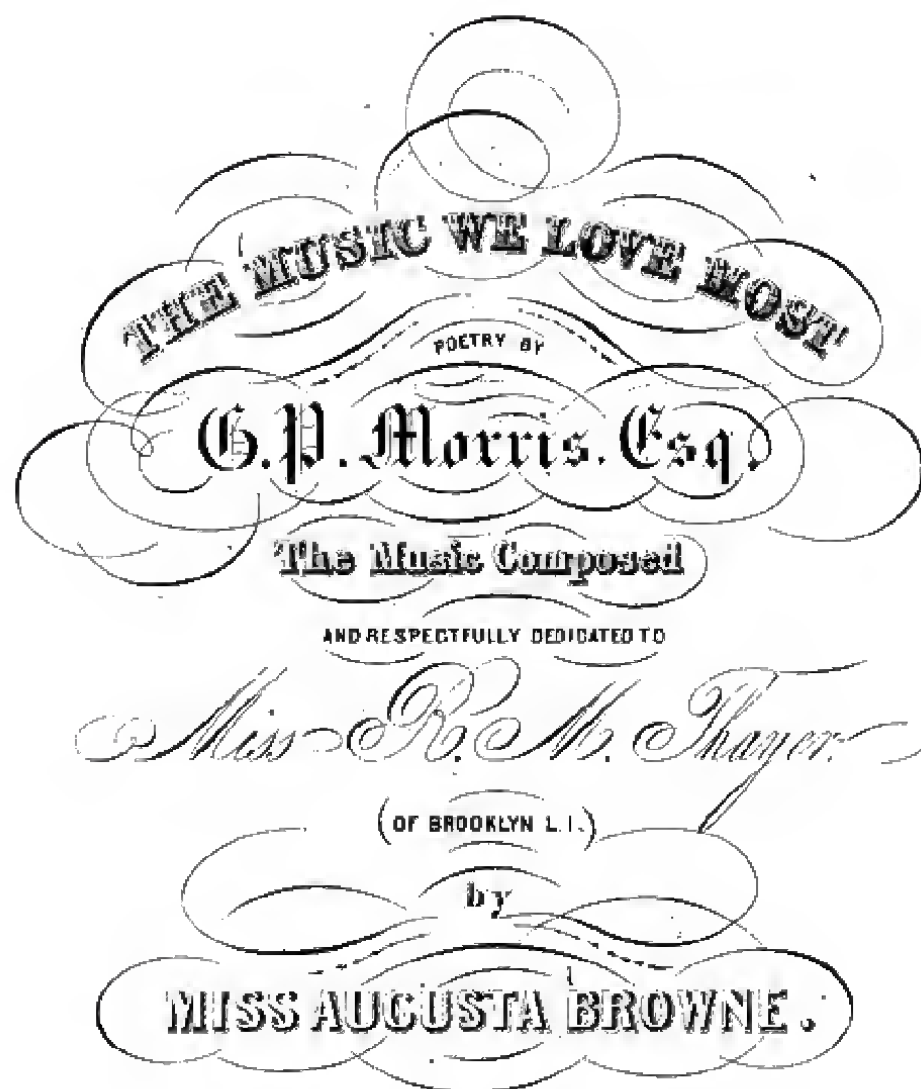 THE MUSIC WE LOVE MOST
POETRY BY
G. P. Morris. Esq.
The Music Composed
AND RESPECTFULLY DEDICATED TO
Miss R. M. Thayer.
(OF BROOKLYN L. I.)
by
MISS AUGUSTA BROWNE.